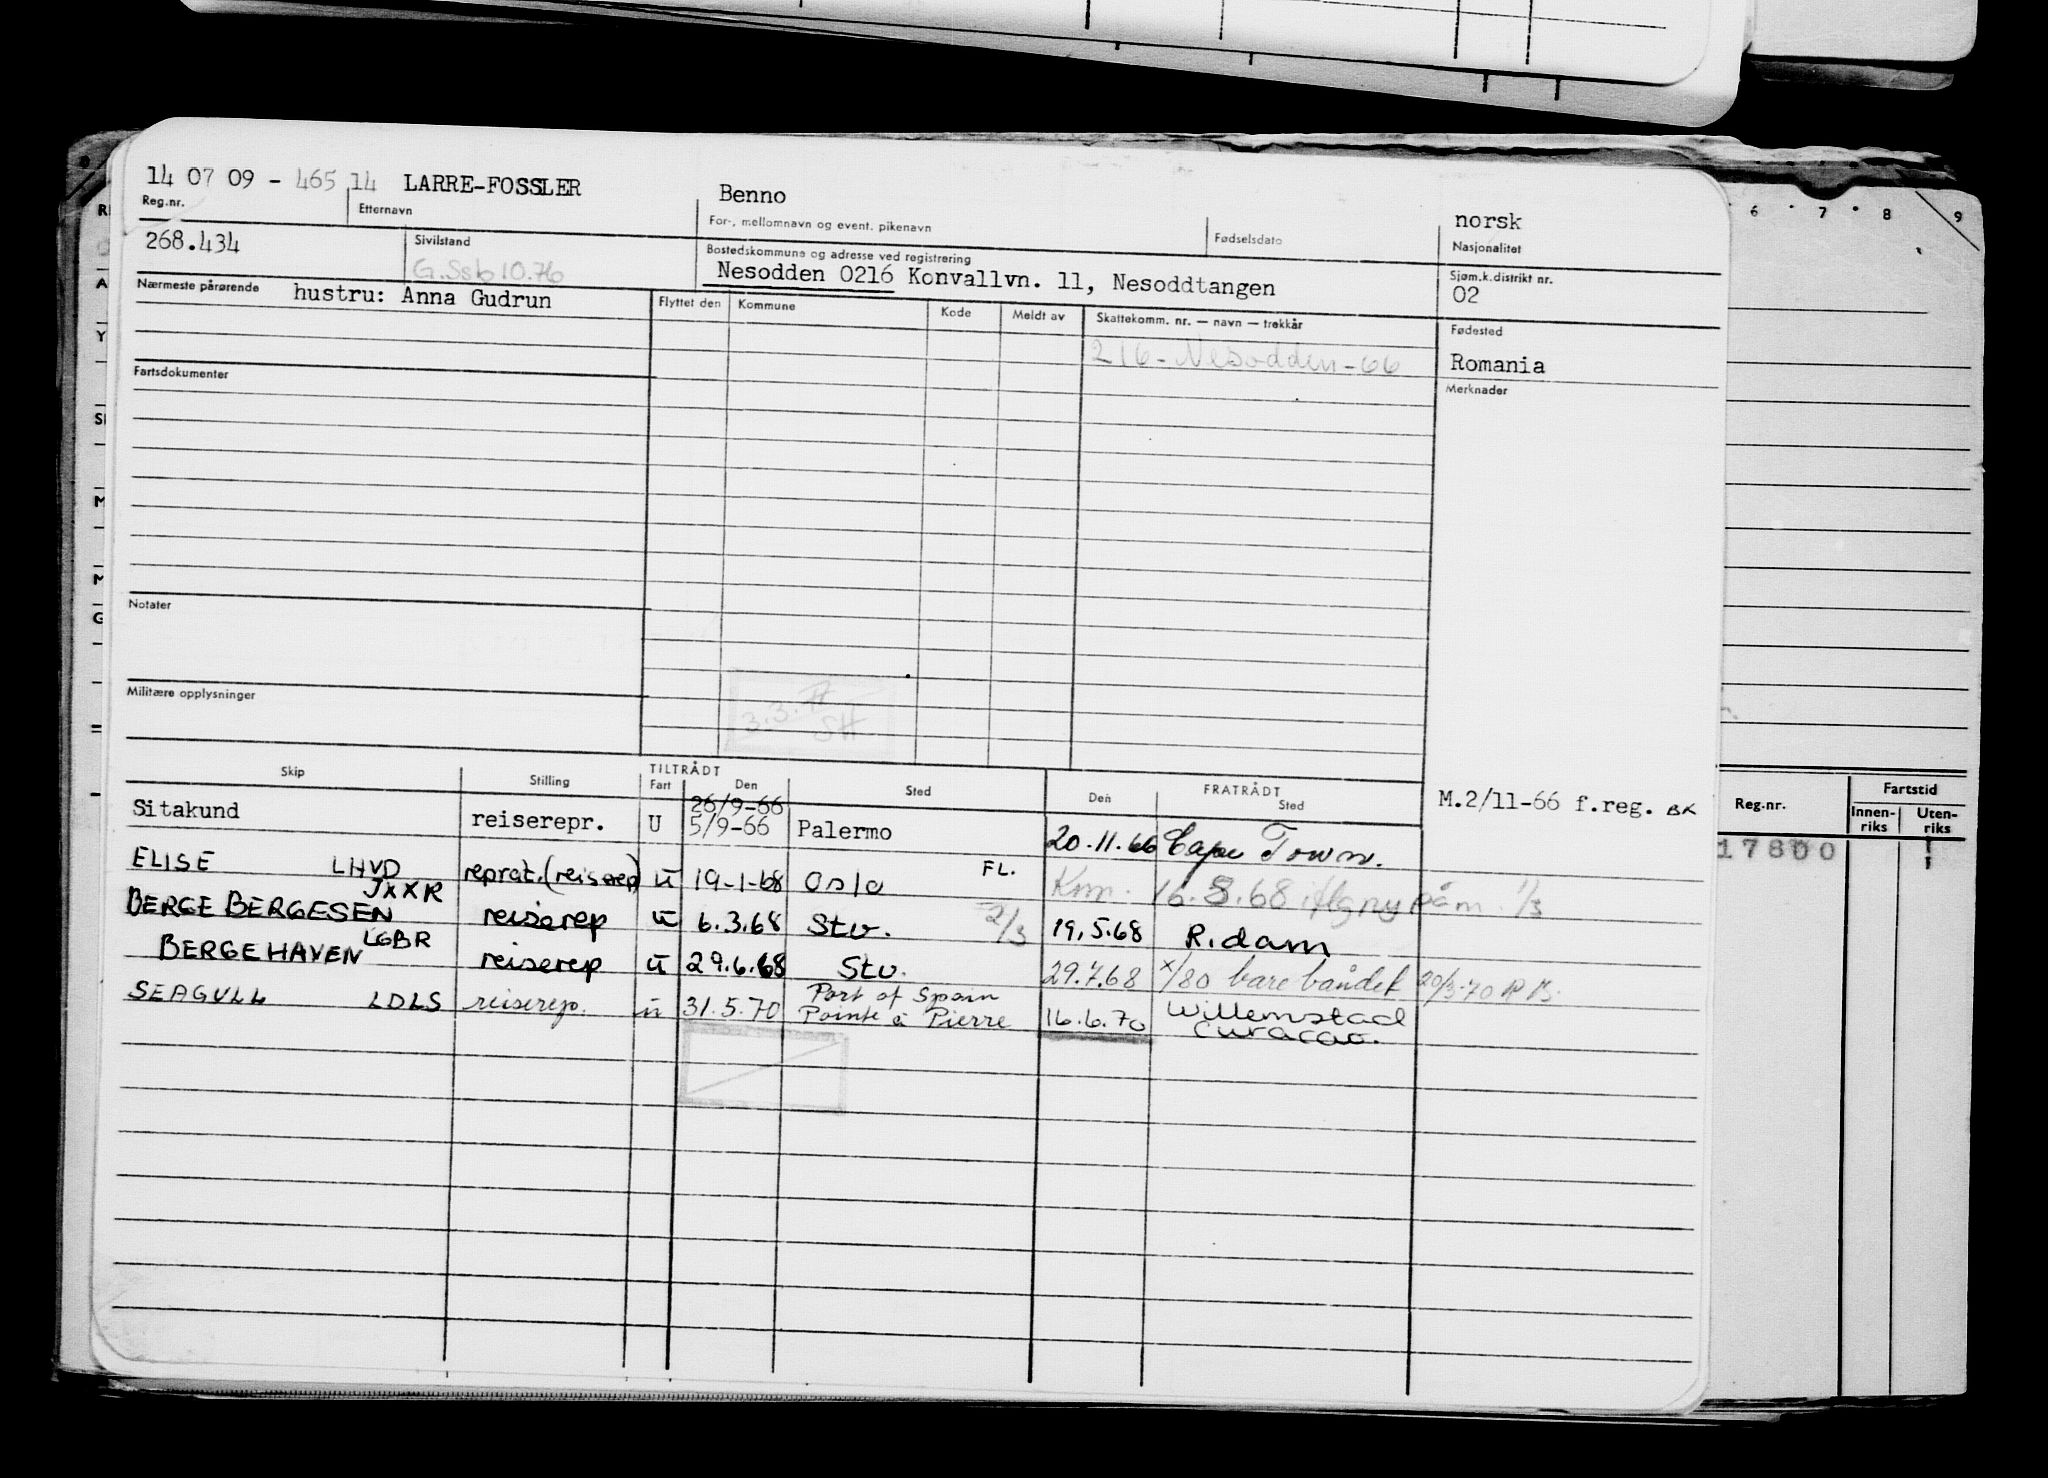 14 07 09 - 465 14 LARRE-FOSSLER Benno norsk
Reg.nr. Etternavn For-, mellomnavn og event. pikenavn Fødselsdato Nasjonalitet
268.434 Sivilstand Bostedskommune og adresse ved registrering Sjøm.k.distrikt nr.
G.Ssb 10.76 Nesodden 0216 Konvallvn. 11, Nesoddtangen 02
Nærmeste pårørende hustru: Anna Gudrun Flyttet den Kommune Kode Meldt av Skattekomm. nr. — navn — trekkår Fødested
216-Nesodden-66 Romania
Fartsdokumenter Merknader
Notater
Militære opplysninger
3.3. SH
Skip Stilling TILTRÅDT Fart Den Sted Den FRATRÅDT Sted
26/9-66
Sitakund reiserepr. U 5/9-66 Palermo 20.11.66 Cape Town. M.2/11-66 f.reg. BK
ELISE LHVD reprat.(reiserep) U 19-1-68 Oslo FL. 16.8.68
BERGE BERGESEN JXXR reiserep U 6.3.68 Stv. 2/3 19.5.68 R.dam
BERGEHAVEN LGBR reiserep U 29.6.68 Stv. 29.7.68 x/80 bare båndet 20/3-70
SEAGULL LDLS reiserep. U 31.5.70 Port of Spain
Pointe à Pierre 16.6.70 Willemstad
Curacao.
6 7 8 9
Reg.nr. Fartstid
Innen-riks Uten-riks
17800